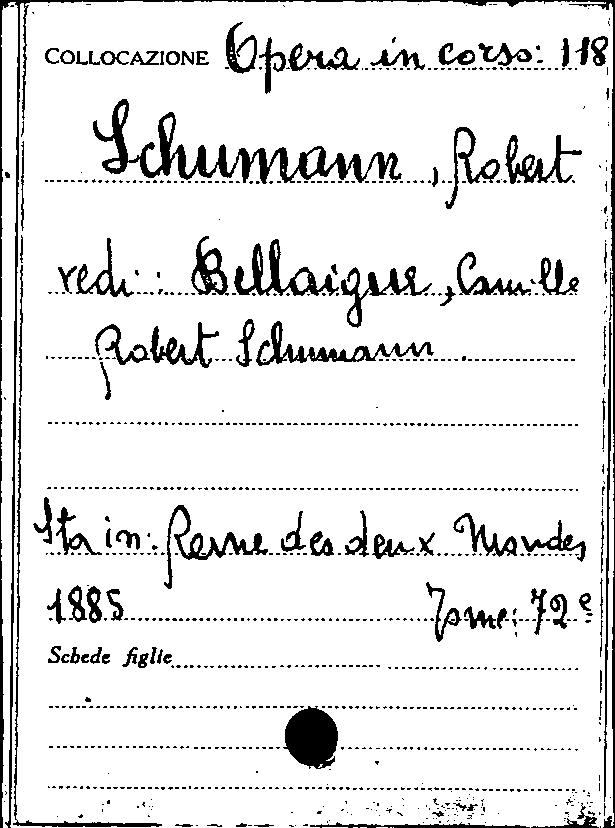 COLLOCAZIONE Opera in corso: 118
Schumann, Robert
vedi: Bellaigue, Camille
Robert Schumann.
Sta in: Revue des deux Mondes
1885 Tome: 72e
Schede figlie